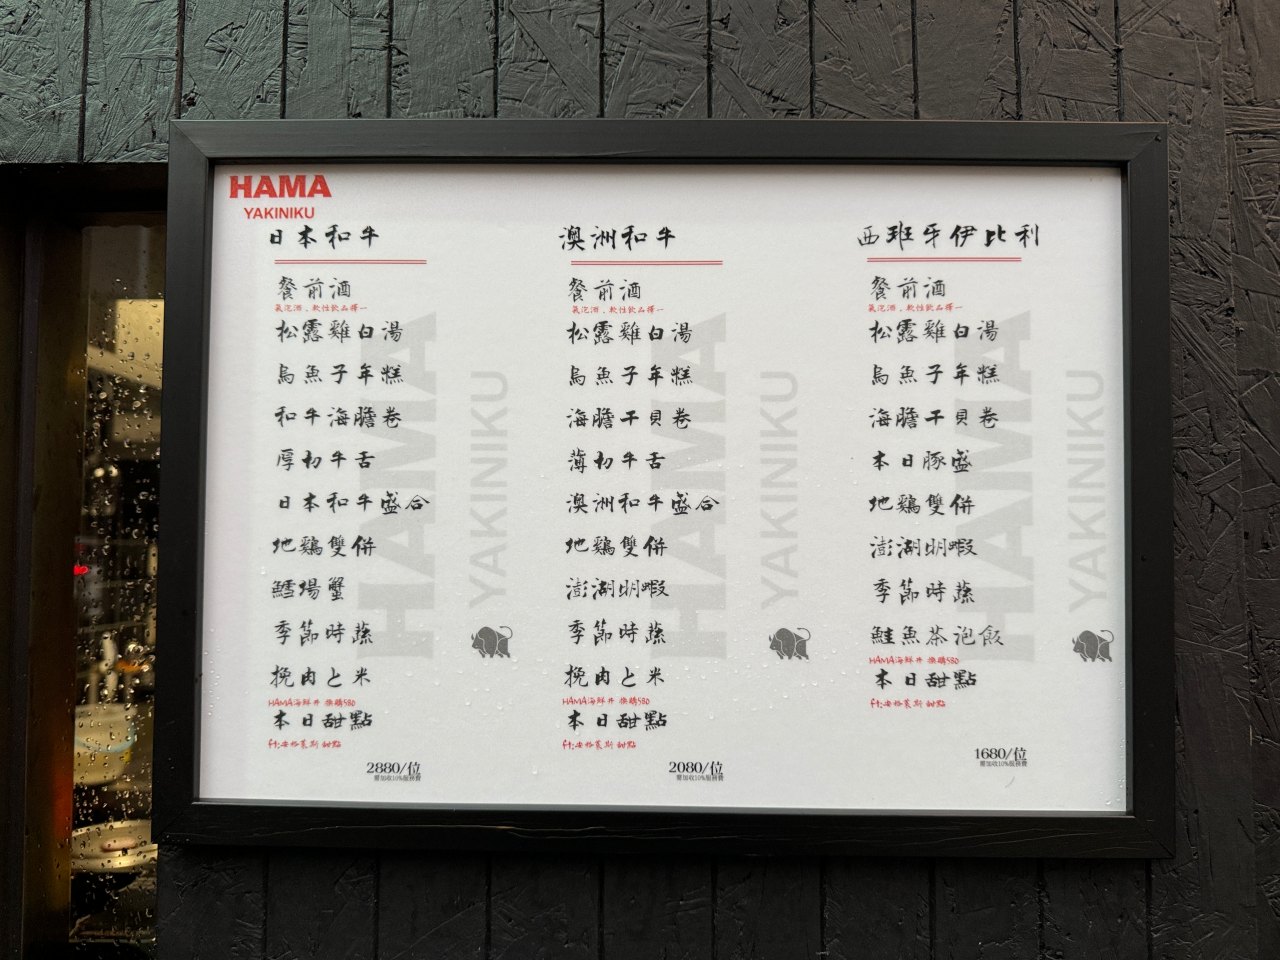 HAMA
YAKINIKU
日本和牛
餐前酒
氣泡酒．軟性飲品擇一
松露雞白湯
烏魚子年糕
和牛海膽卷
厚切牛舌
日本和牛盛合
地鷄雙併
鱈場蟹
季節時蔬
挽肉と米
HAMA海鮮丼 換購580
本日甜點
ft:安格萊斯 甜點
2880/位
需加收10%服務費
澳洲和牛
餐前酒
氣泡酒．軟性飲品擇一
松露雞白湯
烏魚子年糕
海膽干貝卷
薄切牛舌
澳洲和牛盛合
地鷄雙併
澎湖明蝦
季節時蔬
挽肉と米
HAMA海鮮丼 換購580
本日甜點
ft:安格萊斯 甜點
2080/位
需加收10%服務費
西班牙伊比利
餐前酒
氣泡酒．軟性飲品擇一
松露雞白湯
烏魚子年糕
海膽干貝卷
本日豚盛
地鷄雙併
澎湖明蝦
季節時蔬
鮭魚茶泡飯
HAMA海鮮丼 換購580
本日甜點
ft:安格萊斯 甜點
1680/位
需加收10%服務費
HAMA
YAKINIKU
HAMA
YAKINIKU
HAMA
YAKINIKU